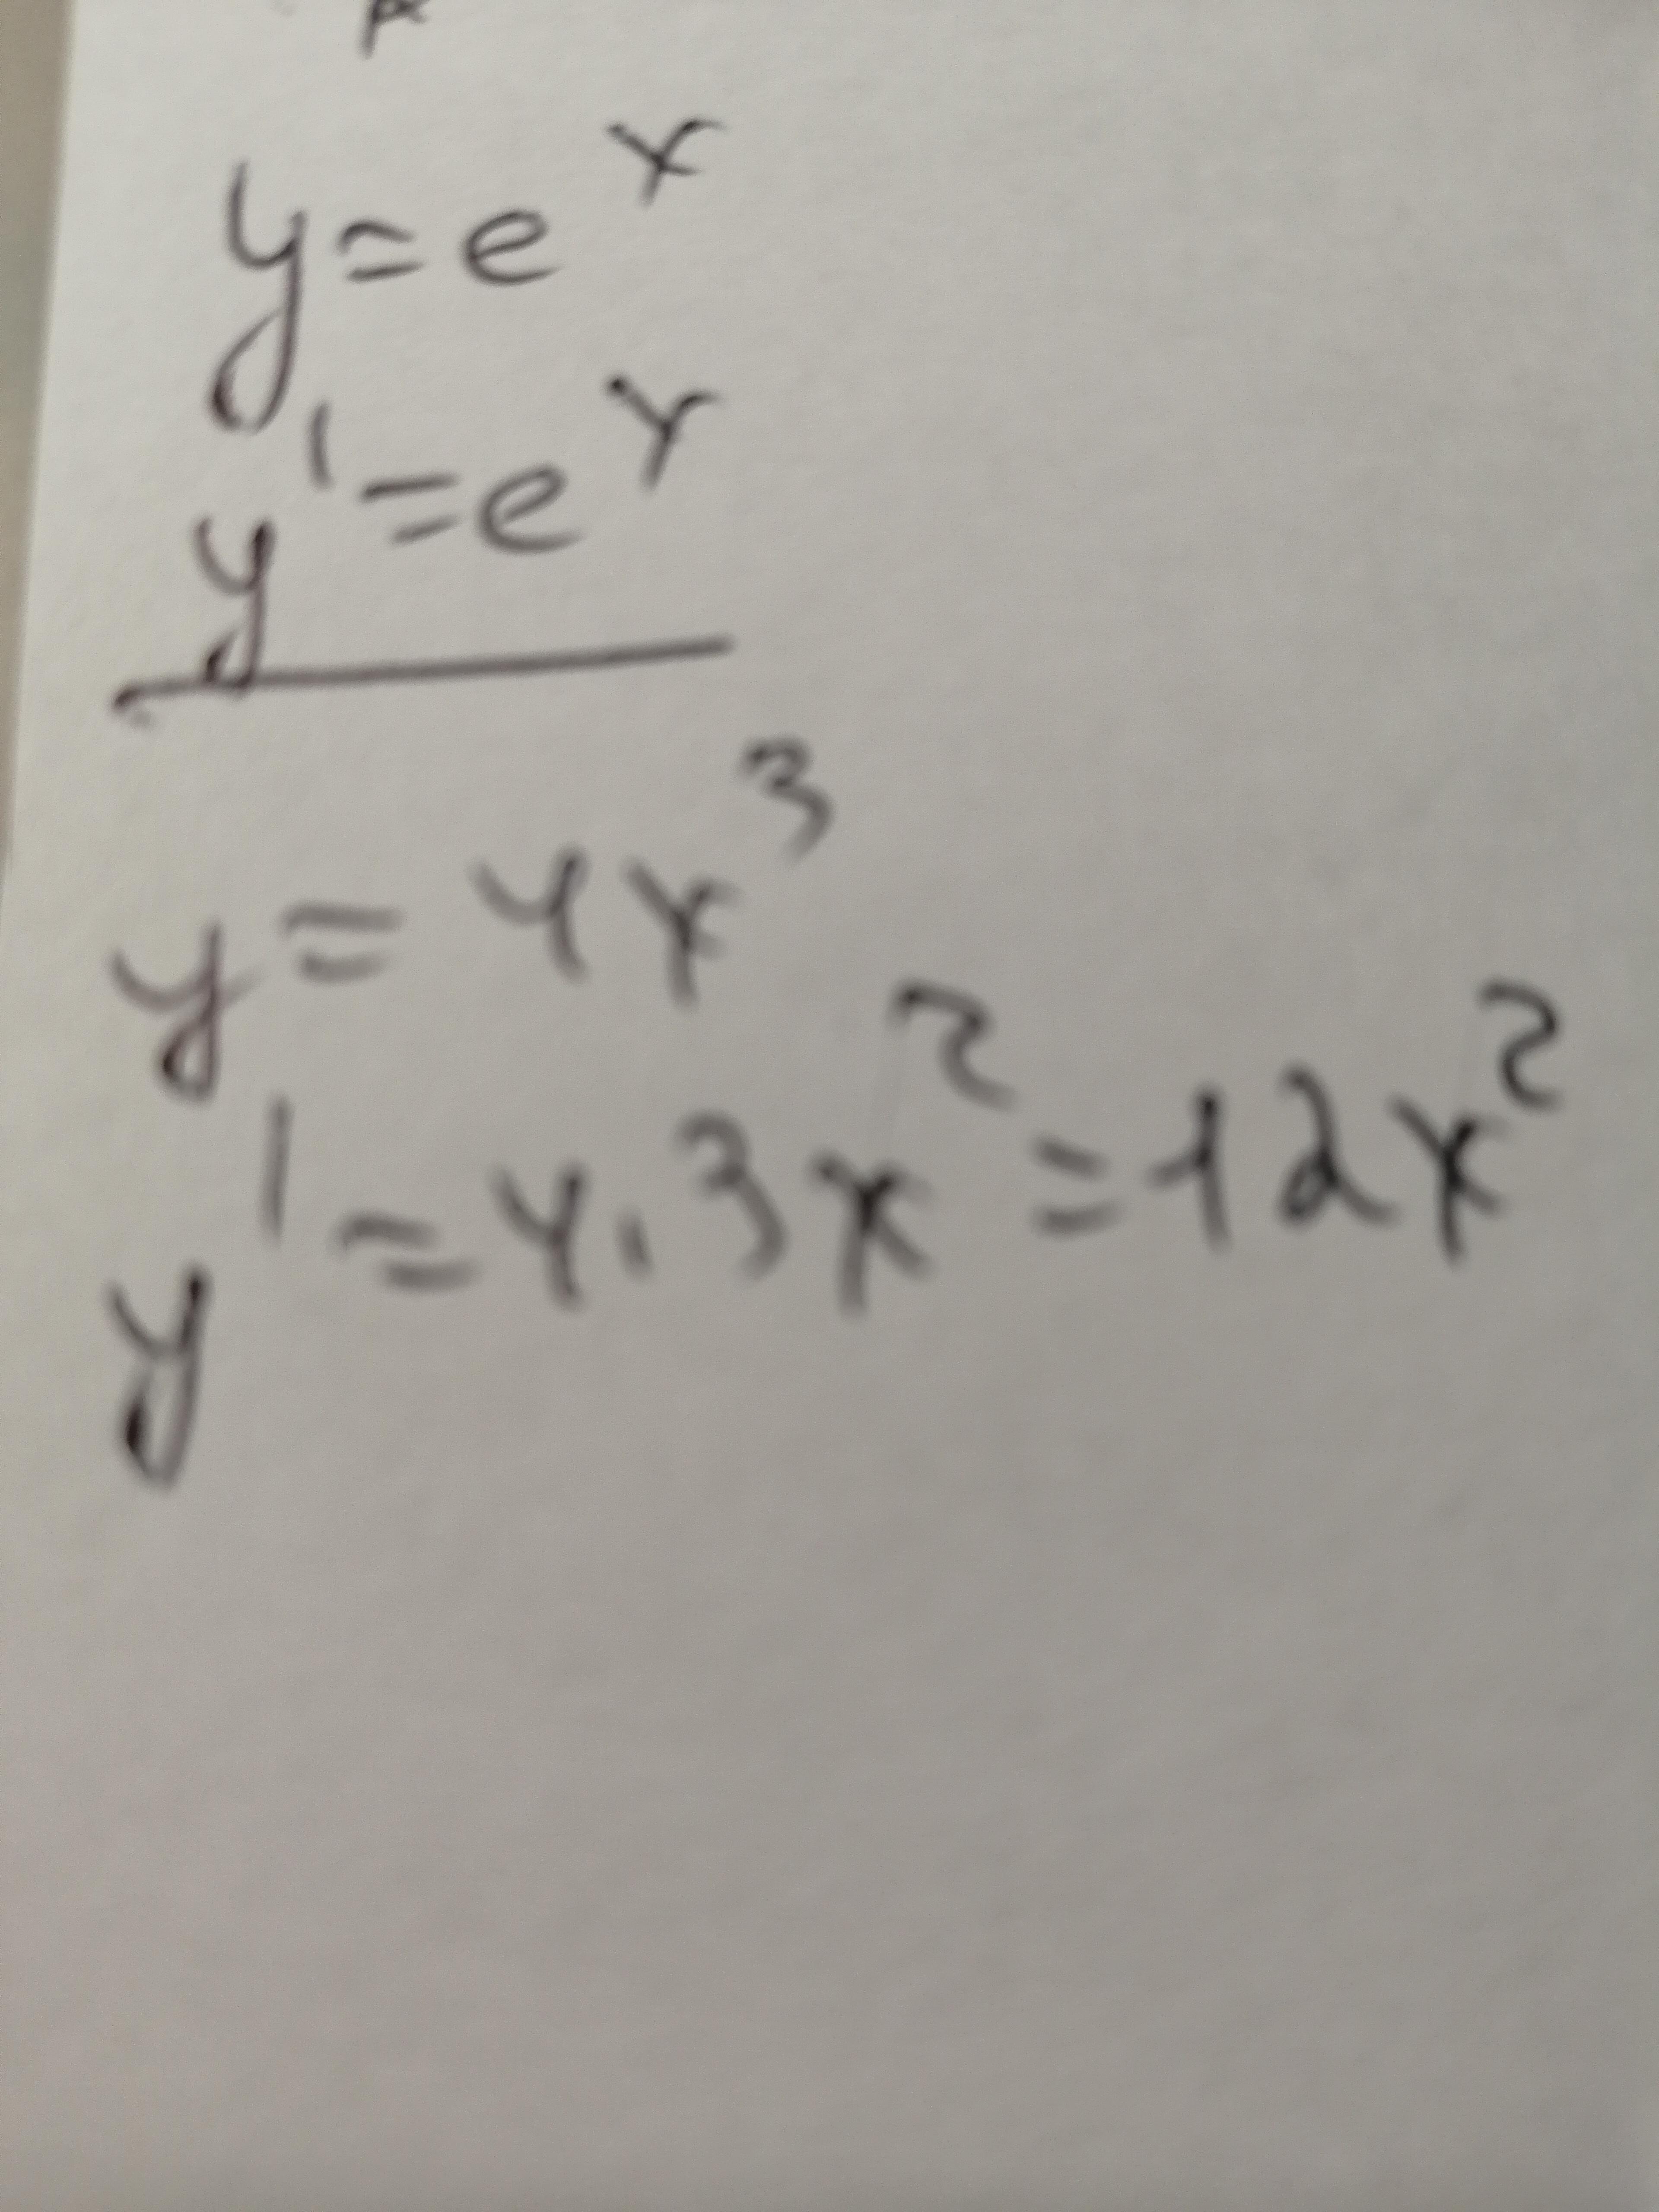 y = e^x
y' = e^x
y = 4x^3
y' = 4.3x^2 = 12x^2